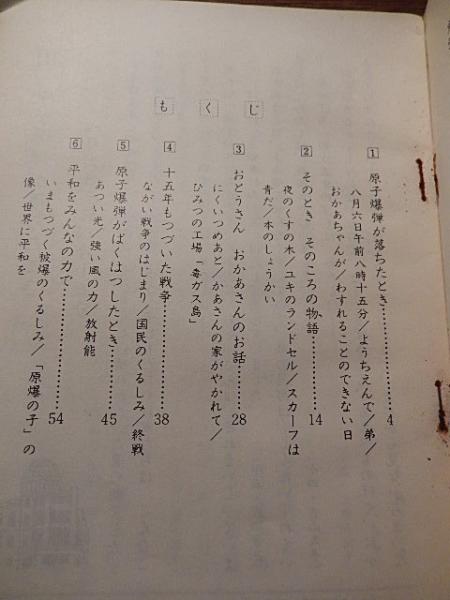 もくじ
1 原子爆弾が落ちたとき…………4
八月六日午前八時十五分／ようちえんで／弟／
おかあちゃんが／わすれることのできない日
2 そのとき そのころの物語…………14
夜のくすの木／ユキのランドセル／スカーフは
青だ／本のしょうかい
3 おとうさん おかあさんのお話…………28
にくいつめあと／かあさんの家がやかれて／
ひみつの工場「毒ガス島」
4 十五年もつづいた戦争…………38
ながい戦争のはじまり／国民のくるしみ／終戦
5 原子爆弾がばくはつしたとき…………45
あつい光／強い風の力／放射能
6 平和をみんなの力で…………54
いまもつづく被爆のくるしみ／「原爆の子」の
像／世界に平和を